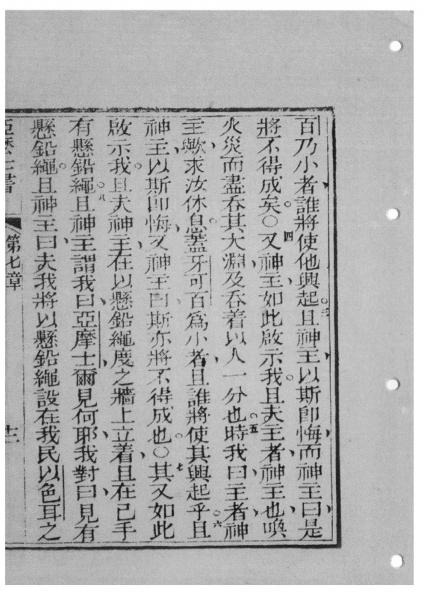 百乃小者誰將使他興起且神主以斯卽悔而神主曰是
將不得成矣○又神主如此啟示我且夫主者神主也喚
火災而盡吞其大淵及吞着以人一分也時我曰主者神
主歟求汝休息蓋牙可百爲小者且誰將使其興起乎且
神主以斯卽悔又神主曰斯亦將不得成也○其又如此
啟示我且夫神主在以懸鉛繩度之牆上立着且在已手
有懸鉛繩且神主謂我曰亞摩士爾見何耶我對曰見有
懸鉛繩且神主曰夫我將以懸鉛繩設在我民以色耳之
第七章 十二
三
四
五
六
七
八